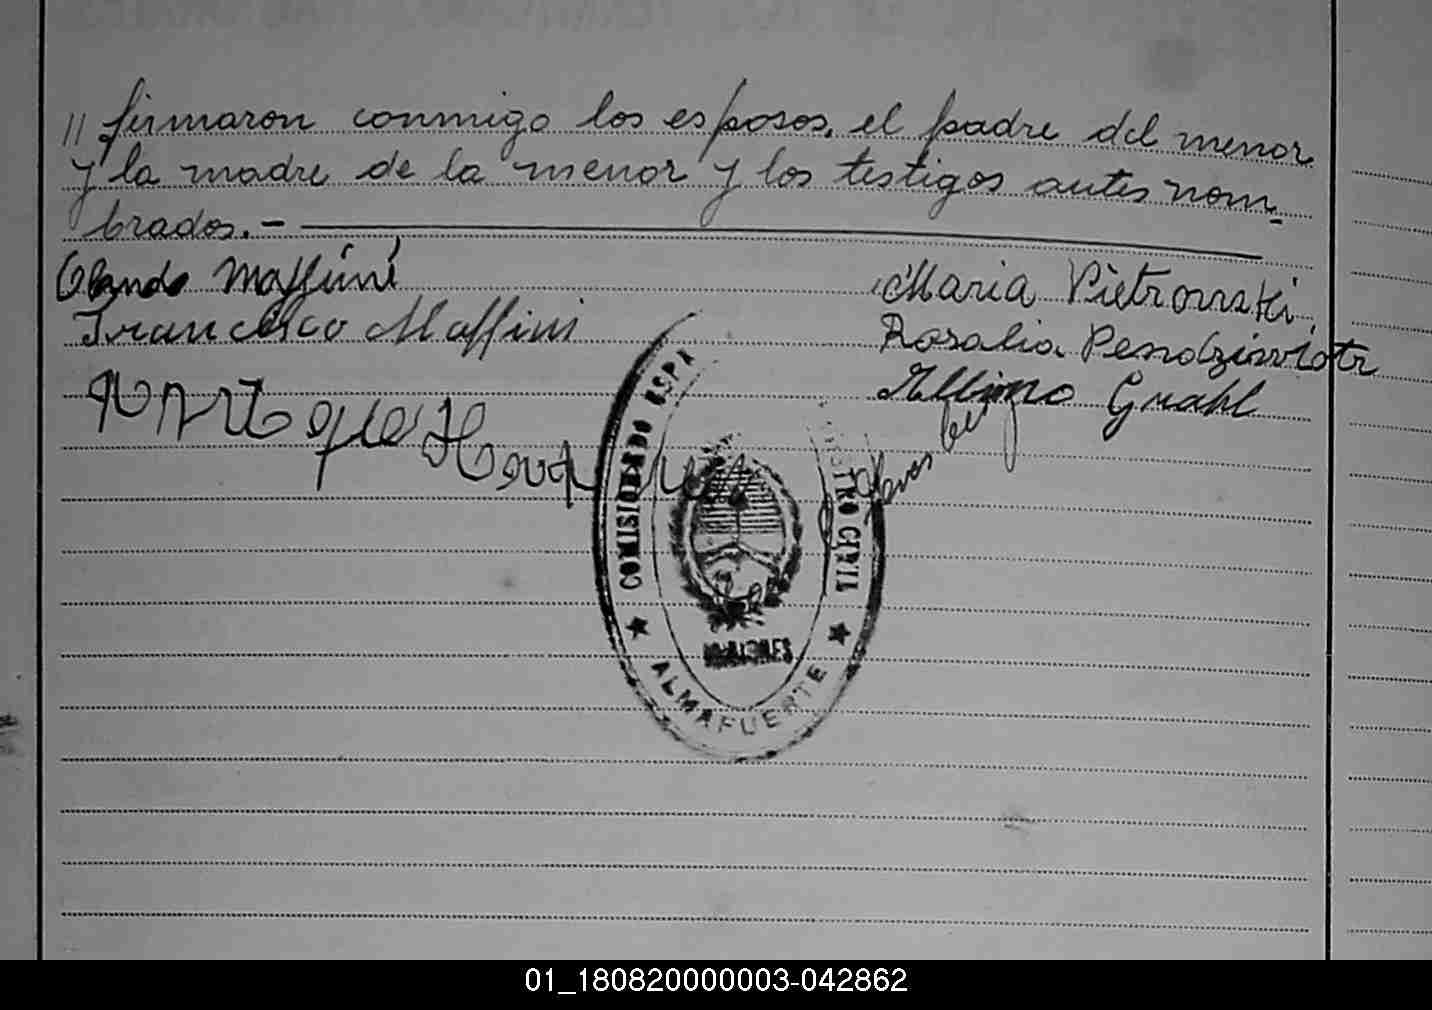 // firmaron conmigo los esposos, el padre del menor
y la madre de la menor y los testigos antes nom_
brados.-
Maffini
Maria Pietrowski
Francisco Maffini
Rosalia
Grahl
COMISIONADO ESPA
REGISTRO CIVIL
MISIONES
ALMAFUERTE
01_180820000003-042862